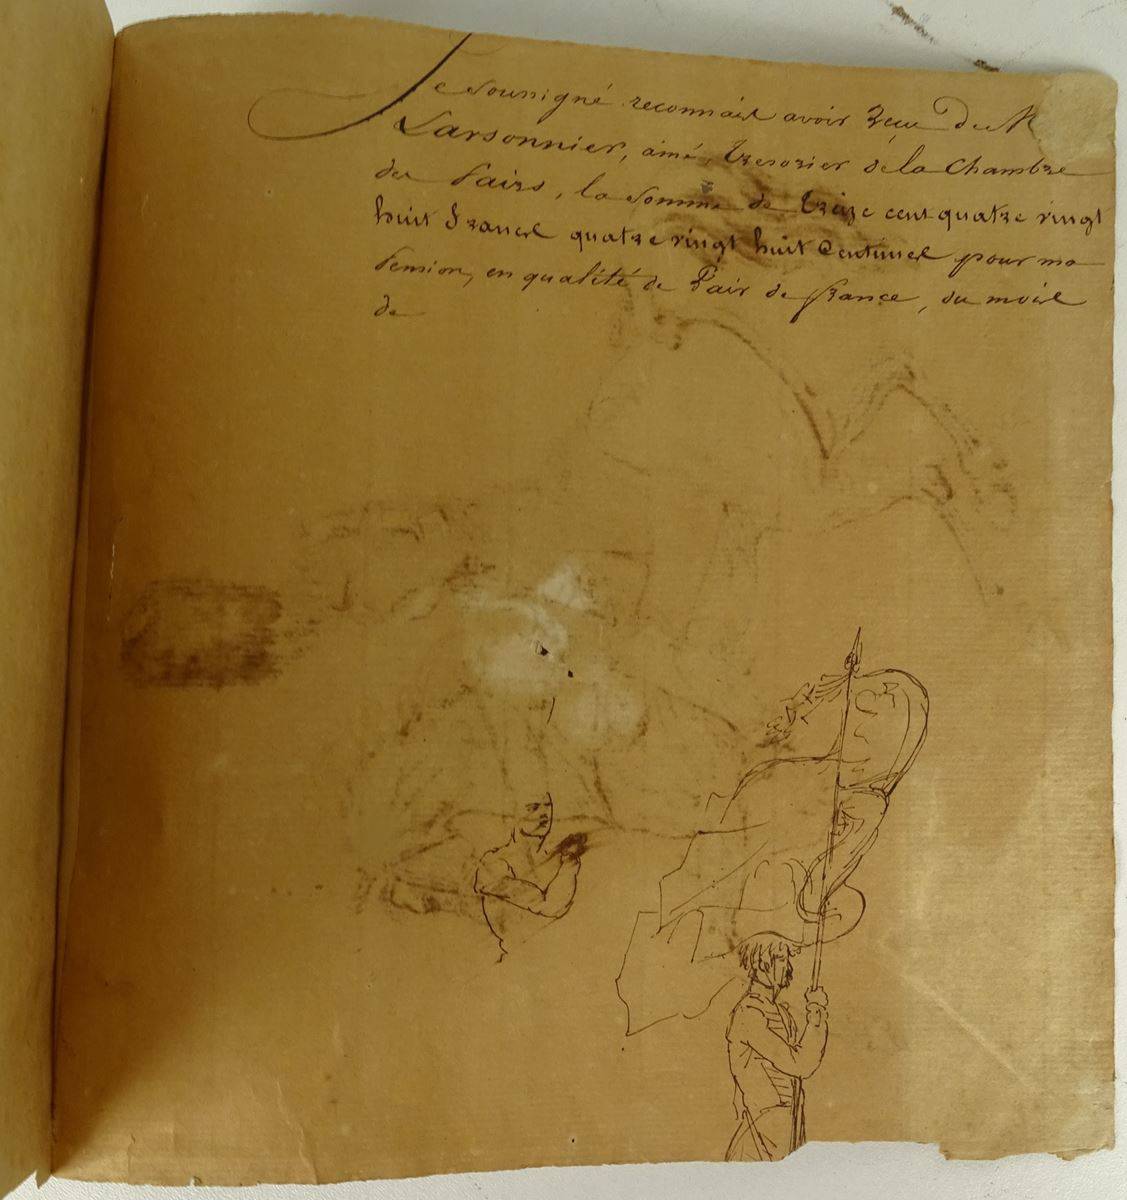 Je Soussigné reconnais avoir Reçu De M
Larsonnier, ainé, Tresorier de la Chambre
des Pairs, la Somme de Treize cent quatre vingt
huit Francs quatre vingt huit Centimes pour ma
Pension, en qualité de Pair de france, du mois
de